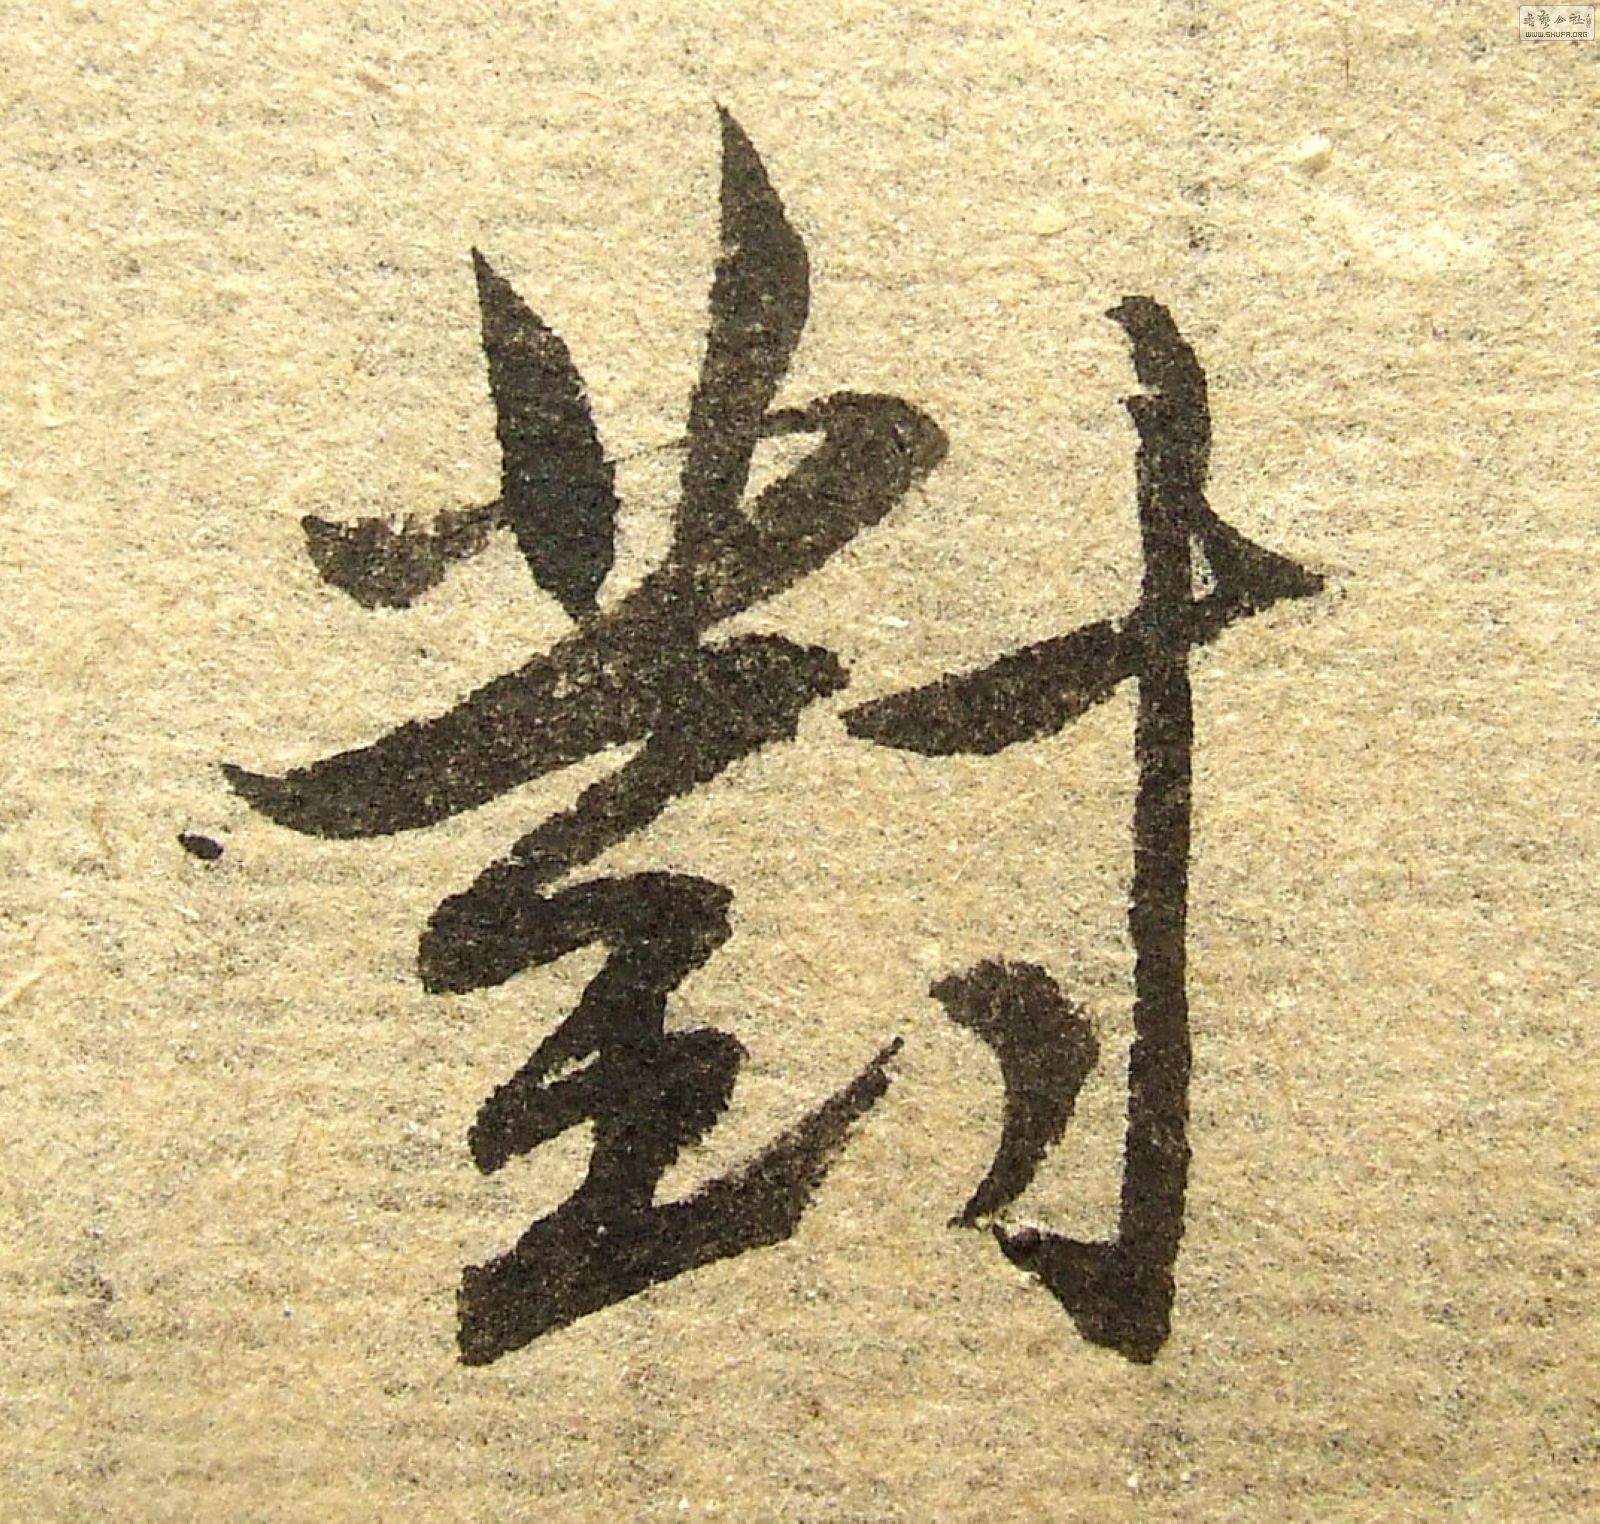 對
書藝公社
WWW.SHUFA.ORG